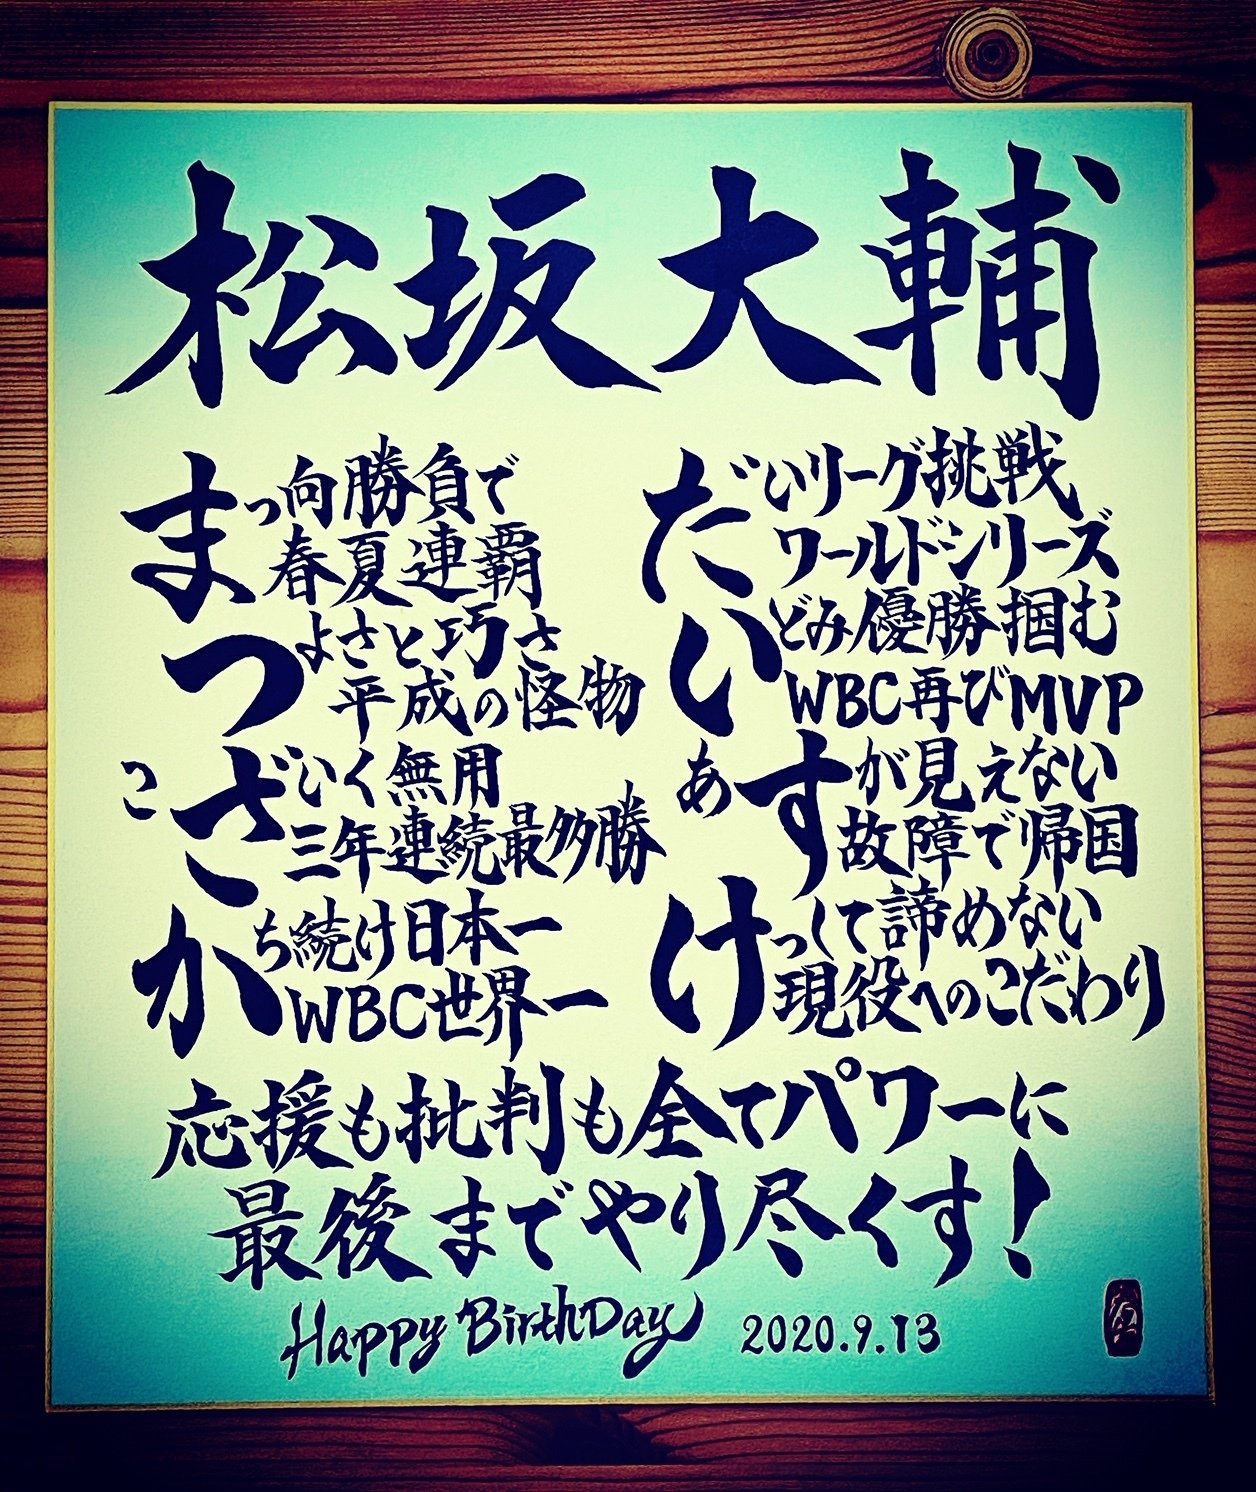 松坂大輔
まっ向勝負で
春夏連覇
つよさと巧さ
平成の怪物
こざいく無用
三年連続最多勝
かち続け日本一
WBC世界一
だいリーグ挑戦
ワールドシリーズ
いどみ優勝掴む
WBC再びMVP
あすが見えない
故障で帰国
けっして諦めない
現役へのこだわり
応援も批判も全てパワーに
最後までやり尽くす!
Happy BirthDay 2020.9.13